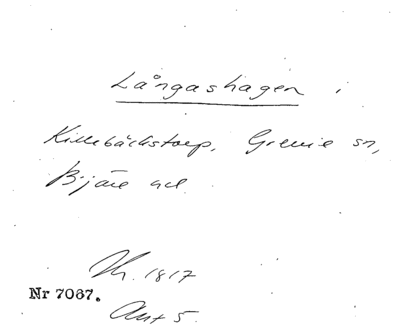 Långashagen i
Killebäckstorp, Grevie sn,
Bjäre hd.
Kr. 1817
Nr 7067.
Akt 5